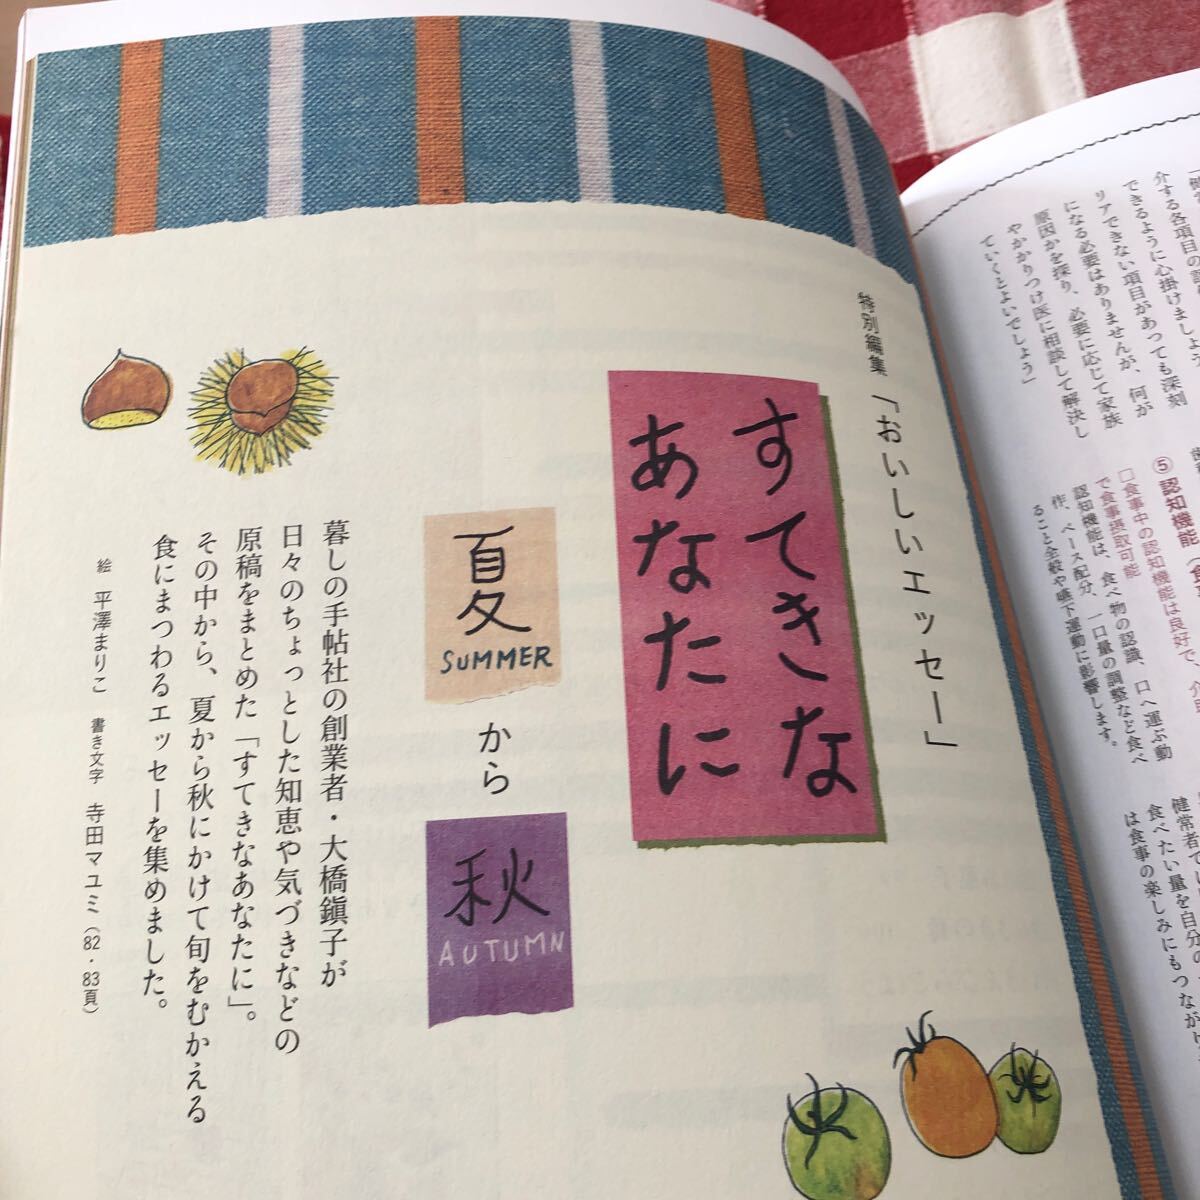 特別編集「おいしいエッセー」
すてきな
あなたに
夏
SUMMER
から
秋
AUTUMN
暮しの手帖社の創業者・大橋鎭子が
日々のちょっとした知恵や気づきなどの
原稿をまとめた「すてきなあなたに」。
その中から、夏から秋にかけて旬をむかえる
食にまつわるエッセーを集めました。
絵 平澤まりこ 書き文字 寺田マユミ(82・83頁)
介する各項目の
できるように心掛けましょう
リアできない項目があっても深刻
になる必要はありませんが、何が
原因かを探り、必要に応じて家族
やかかりつけ医に相談して解決し
ていくとよいでしょう」
⑤認知機能
□食事中の認知機能は良好で、介助
で食事摂取可能
認知機能は、食べ物の認識、口へ運ぶ動
作、ペース配分、一口量の調整など食べ
ること全般や嚥下運動に影響します。
健常者で
食べたい量を自分の
は食事の楽しみにもつながり